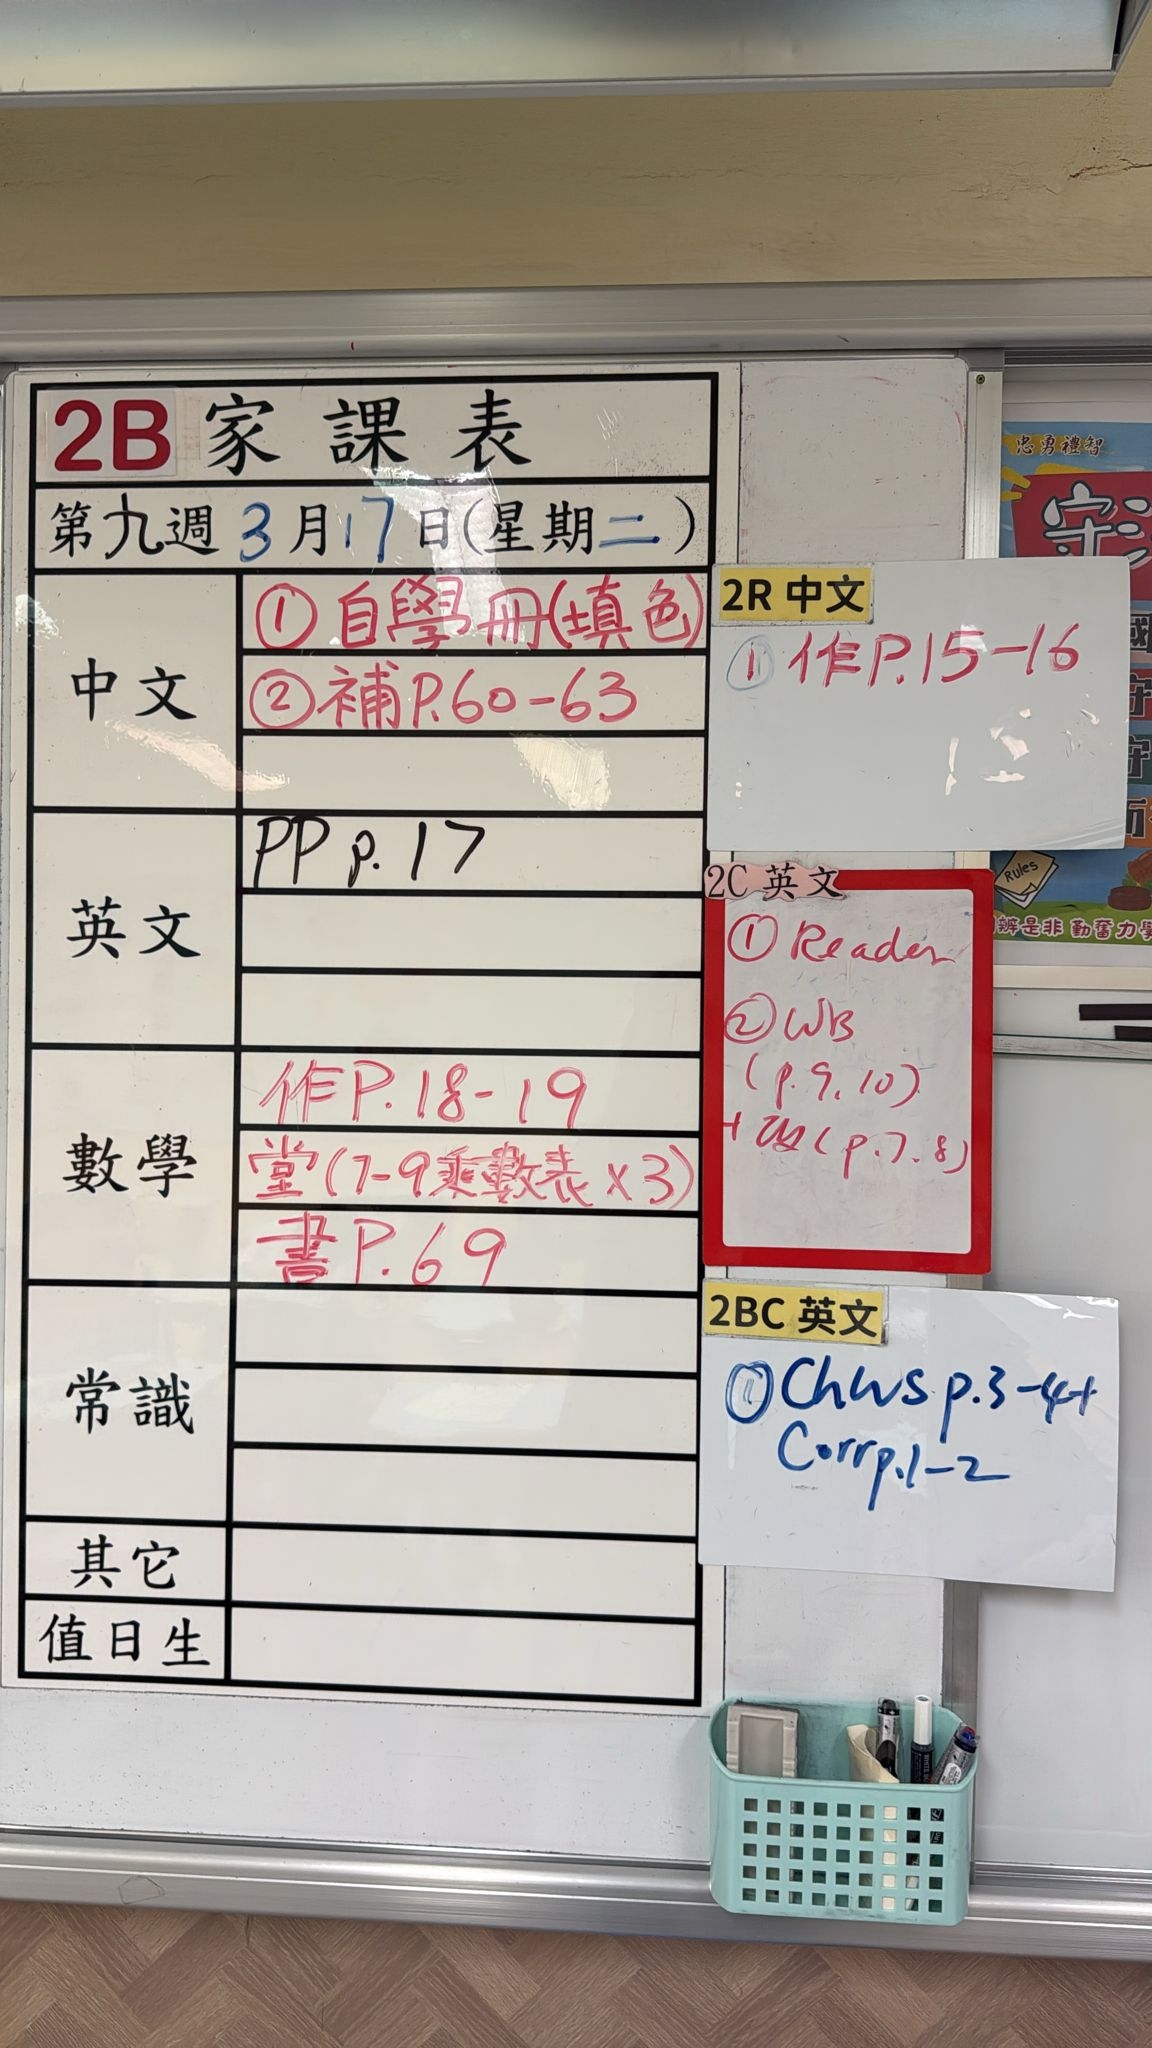 2B 家課表
第九週 3月17日(星期二)
中文
①自學冊(填色)
②補P.60-63
英文
PP p.17
數學
作P.18-19
堂(7-9乘數表x3)
書P.69
常識
其它
值日生
2R 中文
① 作P.15-16
2C 英文
① Reader
② WB
(p.9,10)
+改(p.7,8)
2BC 英文
① Ch WS p.3-4+
Corr p.1-2
忠勇禮智
守
國
守
守
而
Rules
辨是非 勤奮力學